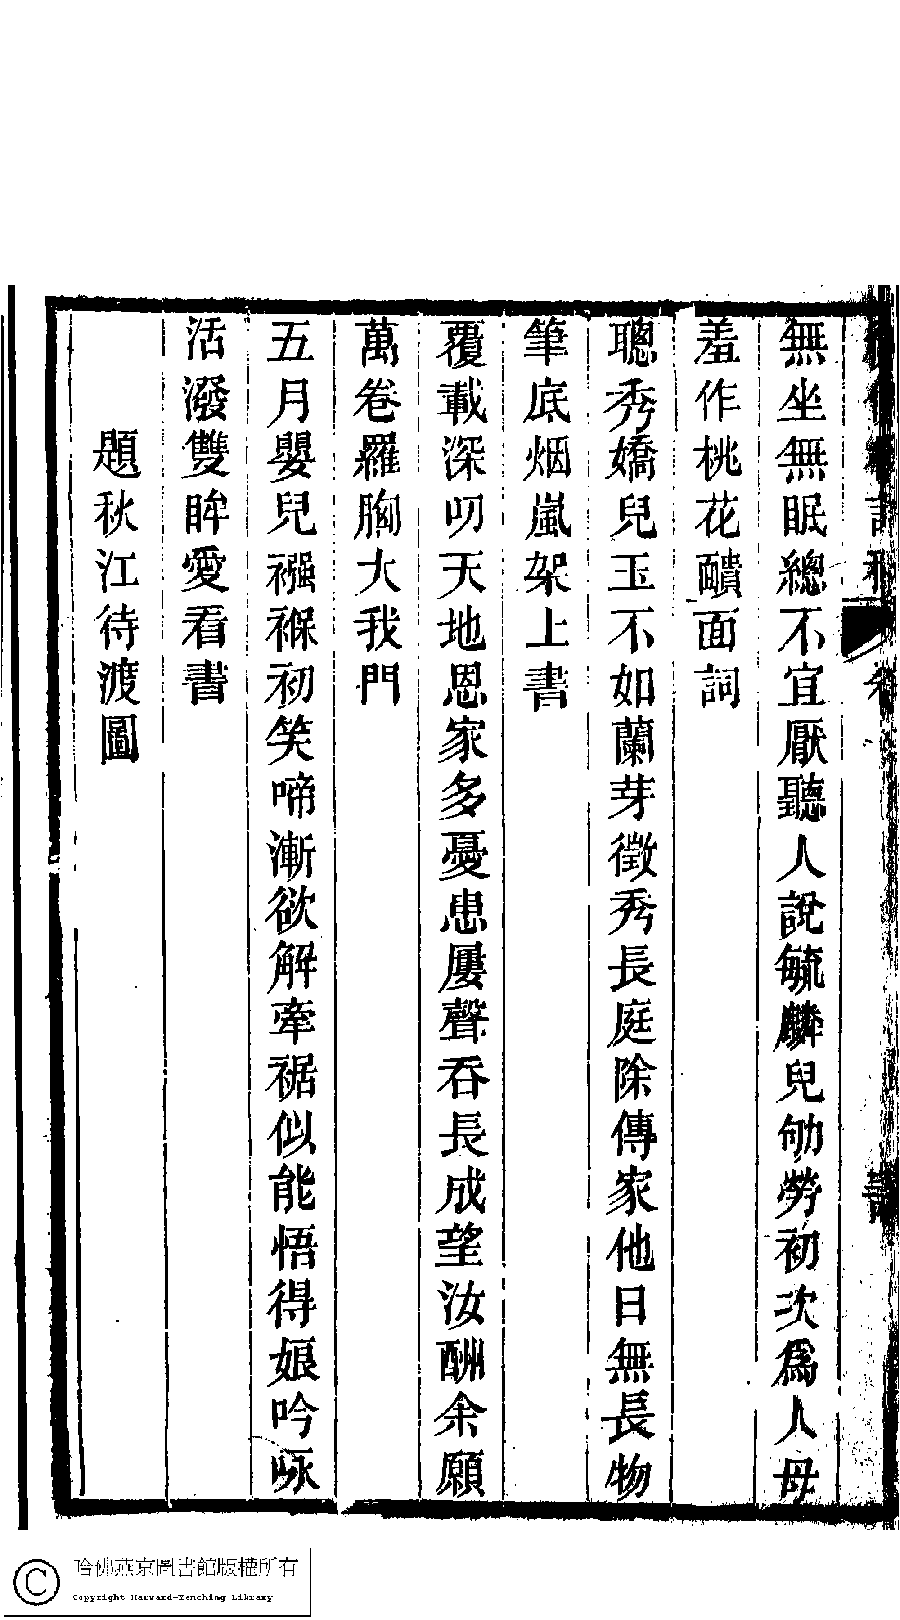 無坐無眠總不宜厭聽人說毓麟兒劬勞初次爲人母
羞作桃花靧面詞
聰秀嬌兒玉不如蘭芽徵秀長庭除傳家他日無長物
筆底烟嵐架上書
覆載深叨天地恩家多憂患屢聲吞長成望汝酬余願
萬卷羅胸大我門
五月嬰兒襁褓初笑啼漸欲解牽裾似能悟得娘吟咏
活潑雙眸愛看書
題秋江待渡圖
哈佛燕京圖書館版權所有
Copyright Harvard-Yenching Library